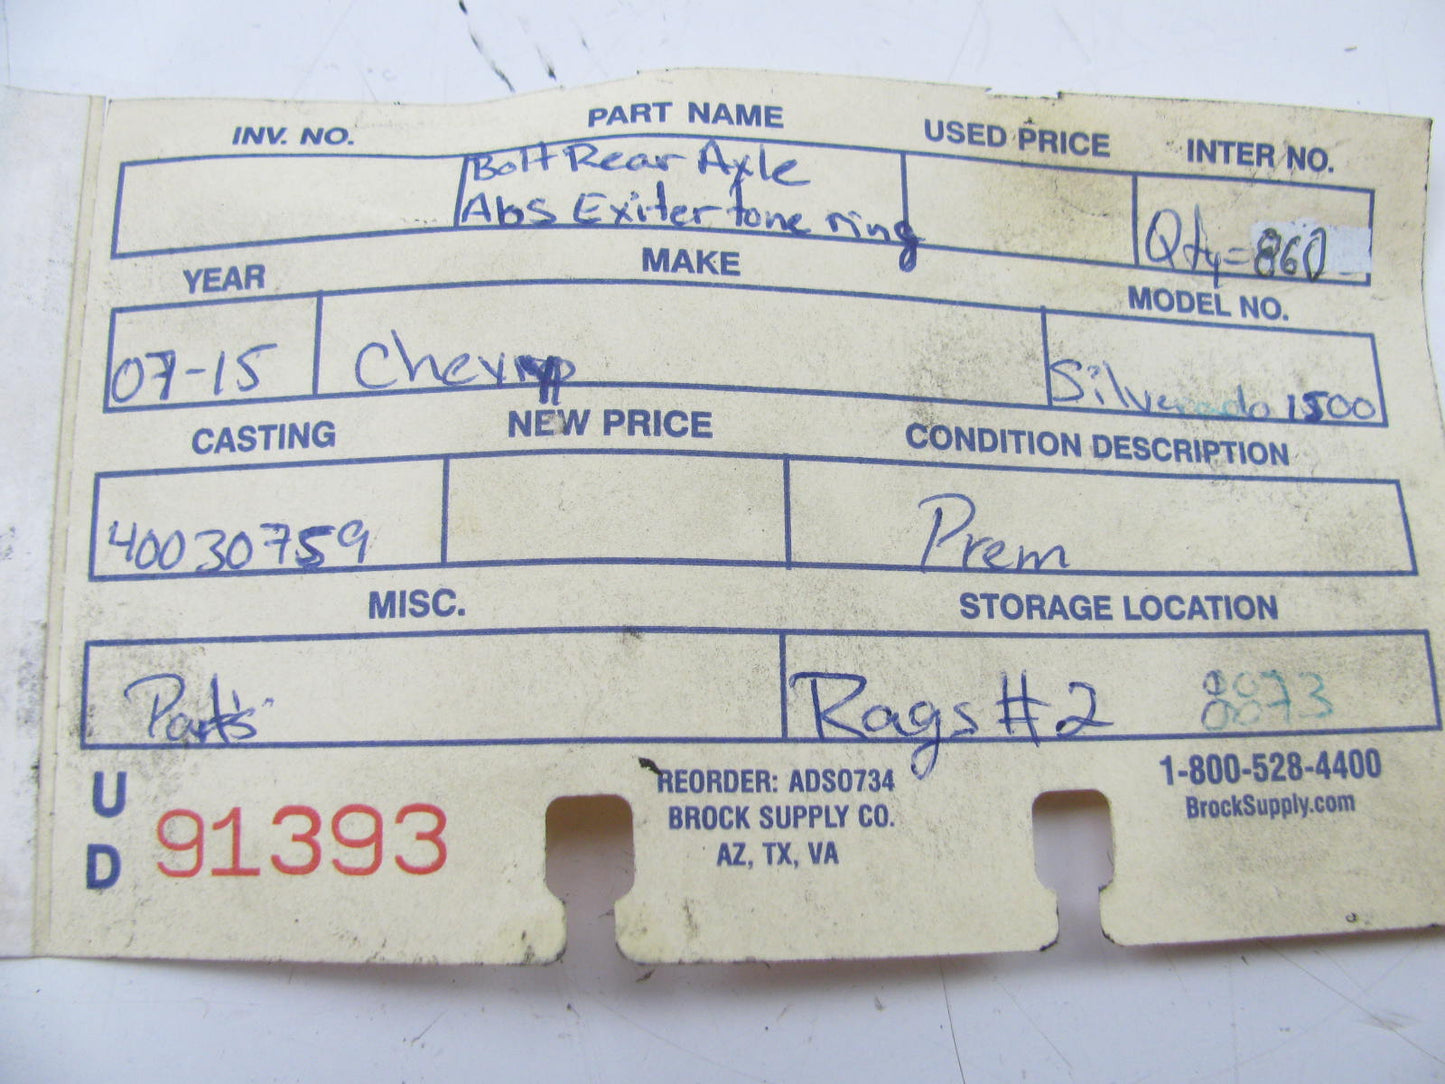 INV. NO. PART NAME USED PRICE INTER NO.
Bolt Rear Axle
Abs Exiter tone ring Qty=860
YEAR MAKE MODEL NO.
07-15 Chevy Silverado 1500
CASTING NEW PRICE CONDITION DESCRIPTION
40030759 Prem
MISC. STORAGE LOCATION
Parts Rags #2 0073
U
D 91393
REORDER: ADS0734
BROCK SUPPLY CO.
AZ, TX, VA
1-800-528-4400
BrockSupply.com